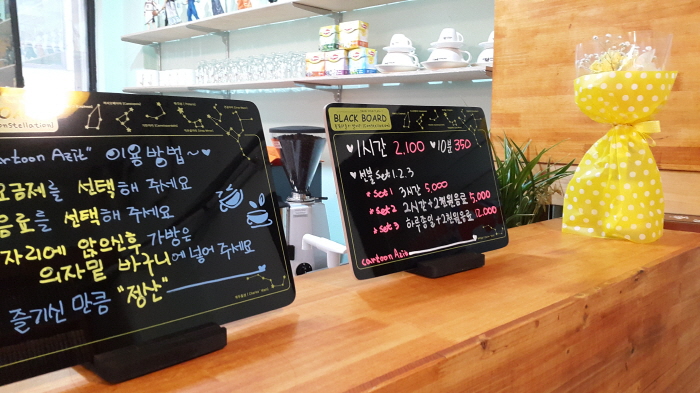 onstellation)
artoon Azit" 이용방법~♥
요금제를 선택해 주세요
음료를 선택해 주세요
자리에 앉으신후 가방은
의자밑 바구니에 넣어 주세요
즐기신 만큼 "정산"
BLACK BOARD
♥1시간 2,100 ♥10분 350
♥선불 Set 1.2.3
set1 3시간 5,000
set2 2시간+2천원음료 5,000
set3 하루종일+2천원음료 12,000
Cartoon Azit